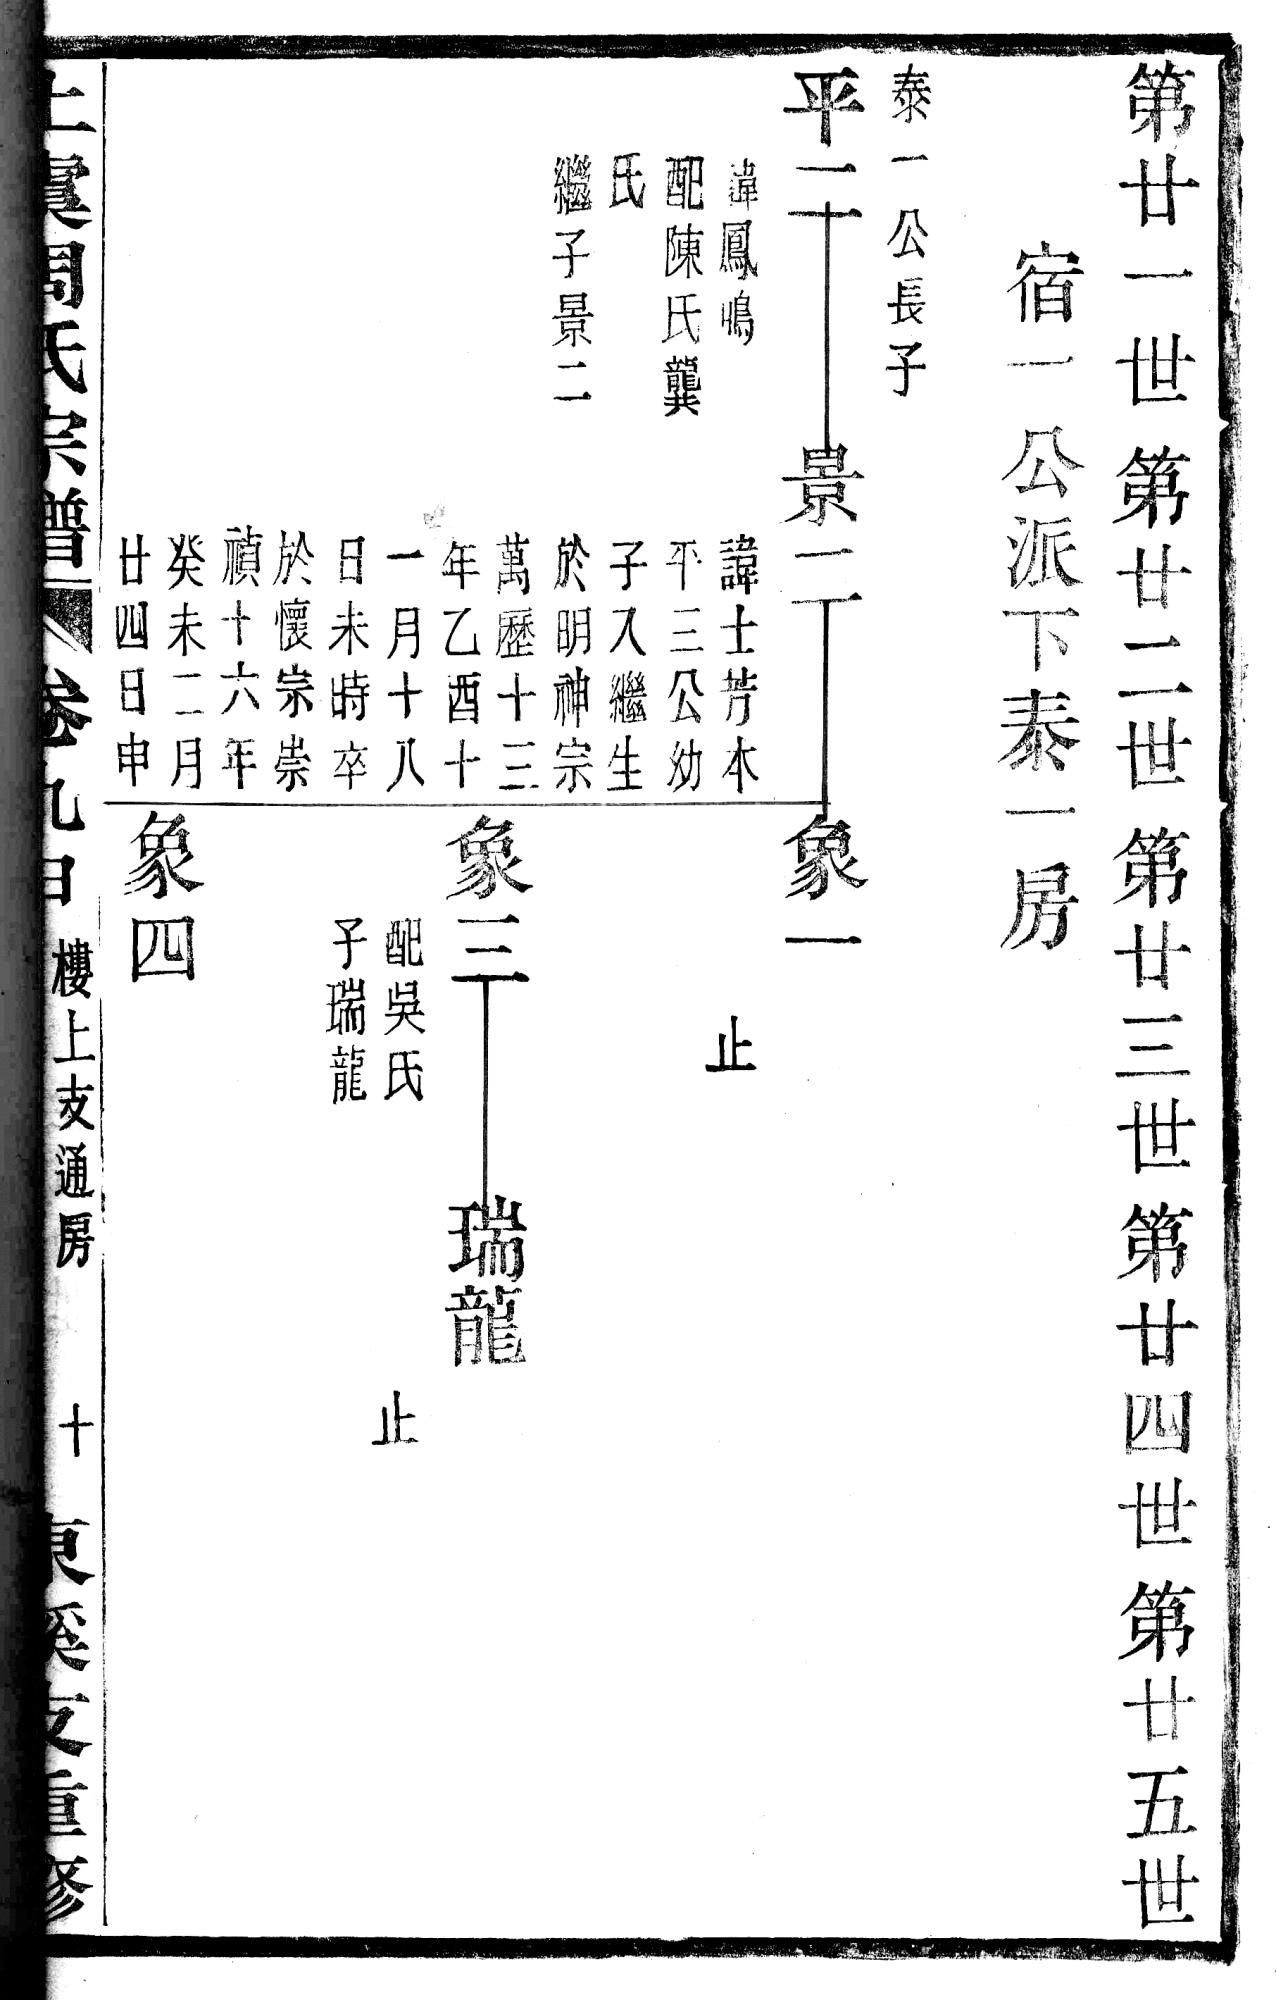 第廿一世 第廿二世 第廿三世 第廿四世 第廿五世
宿一公派下泰一房
泰一公長子
平二
諱鳳鳴
配陳氏龔
氏
繼子景二
景二
諱士芳本
平三公幼
子入繼生
於明神宗
萬歷十三
年乙酉十
一月十八
日未時卒
於懷宗崇
禎十六年
癸未二月
廿四日申
象一
止
象三
配吳氏
子瑞龍
瑞龍
止
象四
上虞周氏宗譜 卷九 樓上支通房 十 東溪支重修